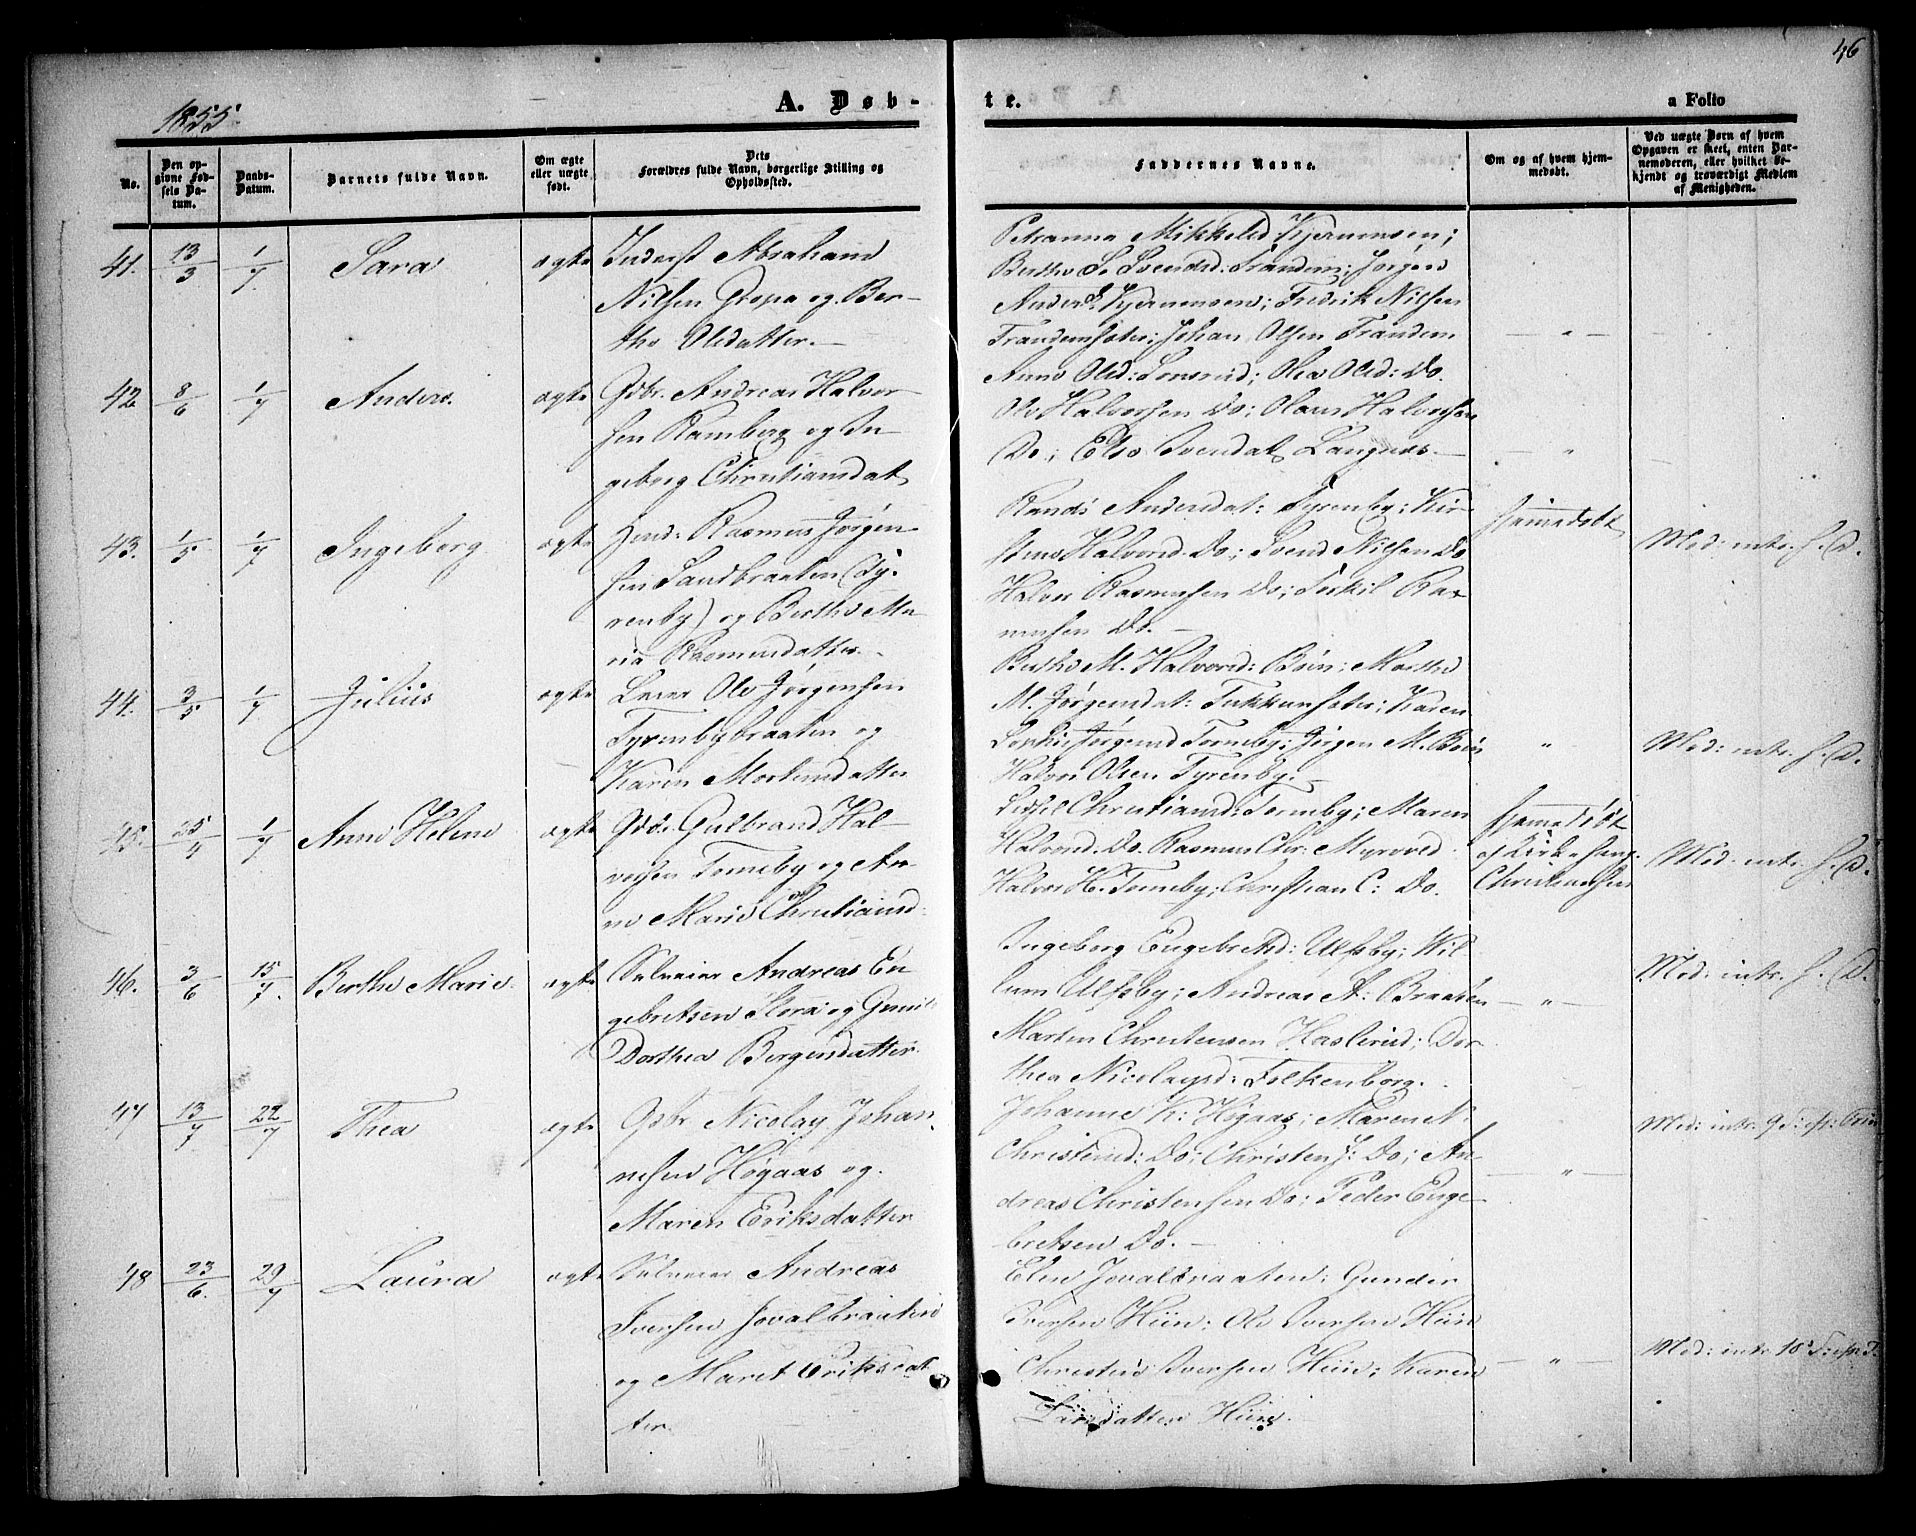 46
1855.
A. Døb-
te.
a Folio
No.
Den op-
givne Fød-
sels Da-
tum.
Daabs-
Datum.
Barnets fulde Navn.
Om ægte
eller uægte
født.
Dets
Forældres fulde Navn, borgerlige Stilling og
Opholdssted.
Faddernes Navne.
Om og af hvem hjem-
medøbt.
Ved uægte Børn af hvem
Opgaven er skeet, enten Bar-
nemoderen, eller hvilket be-
kjendt og troværdigt Medlem
af Menigheden.
41. 13/3 1/7 Sara ægte Inderst Abraham
Nilsen Gropa og Ber-
the Olsdatter. —
Petranna Mikkelsd Kjernemsen;
Berthe S. Svendsd: Trandem; Jørgen
Anders. Kjernemsen; Fredrik Nilsen
Trandemseter; Johan Olsen Trandem
— " —
42 8/6 1/7 Anders. ægte Gdbr. Andreas Halvor-
sen Ramberg og In-
geborg Christiansdat
Anne Olsd: Lonsrud; Olea Olsd: Do.
Ole Halvorsen Do; Olaus Halvorsen
Do; Else Svendat Langnes —
— " —
43. 1/5 1/7 Ingeborg ægte Huusd: Rasmus Jørgen-
sen Sandbraaten (Ty-
renby) og Berthe Ma-
ria Rasmusdatter.
Randi Andersdat: Tyrenby; Kir-
stine Halvorsd. Do; Svend Nilsen Do
Halvor Rasmusen Do; Terkil Ras-
musen Do. —
hjemmedøbt
Mod: intr. h. D.
44. 3/5 1/7 Julius ægte Leier Ole Jørgensen
Tyrenbybraaten og
Karen Mortensdatter
Berthe M. Halvorsd: Buin; Marthe
M. Jørgensdat: Tukkunseter; Karen
Sophie Jørgensd Tomeby; Jørgen M. Buin
Halvor Olsen Tyrenby. —
"
Mod: intr. h. D.
45. 25/4 1/7 Anne Helene ægte Gdbr. Gulbrand Hal-
vorsen Tomeby og An-
ne Marie Christiansd.
Sidsel Christiansd: Tomeby; Maren
Halvorsd. Do. Rasmus Chr: Myrvold
Halvor H. Tomeby; Christian C: Do.
hjemmedøbt
af Kirkesang.
Christiansen
Mod: intr. h. D.
46. 3/6 15/7. Berthe Marie. ægte Selveier Andreas En-
gebretsen Flora og Gunil
Dorthea Bergersdatter
Ingeborg Engebretsd: Ulfsby; Wil-
lum Ulfsby; Andreas A: Braaten
Martin Christensen Haslerud; Dor-
thea Nicolaysd: Folkenborg.
— " —
Mod: intr. h. D.
47 13/7 22/7 Thea ægte Gdbr Nicolay Johan-
nesen Høgaas og
Maren Eriksdatter
Johanne K: Høgaas; Maren N.
Christensd: Do; Christen J: Do; An-
dreas Christensen Do; Peder Enge-
bretsen Do. —
— " —
Mod: intr. 9 S: ep: Trin
48 23/6. 29/7 Laura ægte Selveier Andreas
Iversen Jovalbraaten
og Maret Eriksdat-
ter.
Elen Jovalbraaten; Gunder
Iversen Hiin; Ole Iversen Hiin
Christen Iversen Hiin; Karen
Larsdatter Hiin.
— " —
Mod: intr 18 S: ep T.